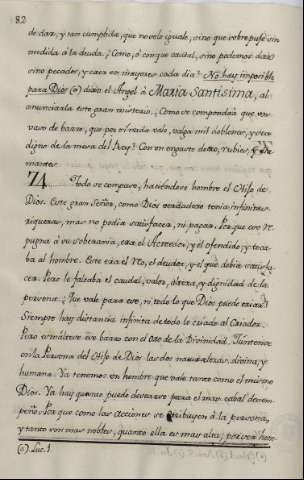 82
de dar, y tan cumplida, que no solo iguale, sino que sobrepuje sin
medida á la deuda. ¿Cómo, ó con que caudal, sino podemos dar
sino pecados, y caer en mayores cada dia? No hay imposible
para Dios (a) dixo el Angel á Maria Santisima, al
anunciarla este gran misterio. ¿Como se compondria que un
vaso de barro, que por sí nada vale, valga mil doblones, y sea
digno de la mesa del Rey? Con un engaste de oro, rubies, y dia-
mantes.
74 Todo se compuso, haciendose hombre el Hijo de
Dios. Este gran Señor, como Dios verdadero tenia infinitas
riquezas, mas no podia satisfacer, ni pagar. Porque eso re-
pugna á su soberania, era el Acreedor, y el ofendido, y toca-
ba al hombre. Este era el Reo, el deudor, y el que debia satisfa-
cer. Pero le faltaba el caudal, valor, obras, y dignidad de la
persona. ¿Que vale para eso, ni todo lo que Dios puede criar?
Siempre hay distancia infinita de todo lo criado al Criador.
Pero
ese barro con el oro de la Divinidad. Juntense
en la Persona del Hijo de Dios las dos naturalezas, divina, y
humana. Ya tenemos un hombre que vale tanto como el mismo
Dios. Ya hay quanto puede desearse para el mas cabal desem-
peño. Porque como las acciones se atribuyen á la persona,
y tanto son mas nobles, quanto ella es mas alta; por eso
(a) Luc. 1.